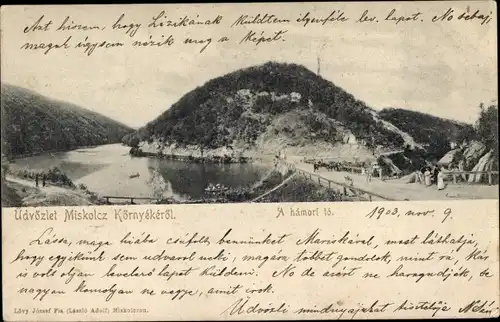 Azt hiszem, hogy Lizikának küldtem ilyenféle lev. lapot. No de baj,
magát úgysem nézik meg a képet.
Üdvözlet Miskolcz Környékéről.
A hámori tó.
1903. nov. 9.
Lássa, maga hiába csúfolt bennünket Mariskával, most láthatja,
hogy egyikünk sem udvarol neki, magára többet gondolok, mint rá, Már
is volt olyan levelező lapot küldeni. No de azért ne haragudjék, be
nagyon komolyan ne vegye, amit írok.
Üdvözli mindnyájukat kistelója
Lövy József Fia (László Adolf) Miskolczon.